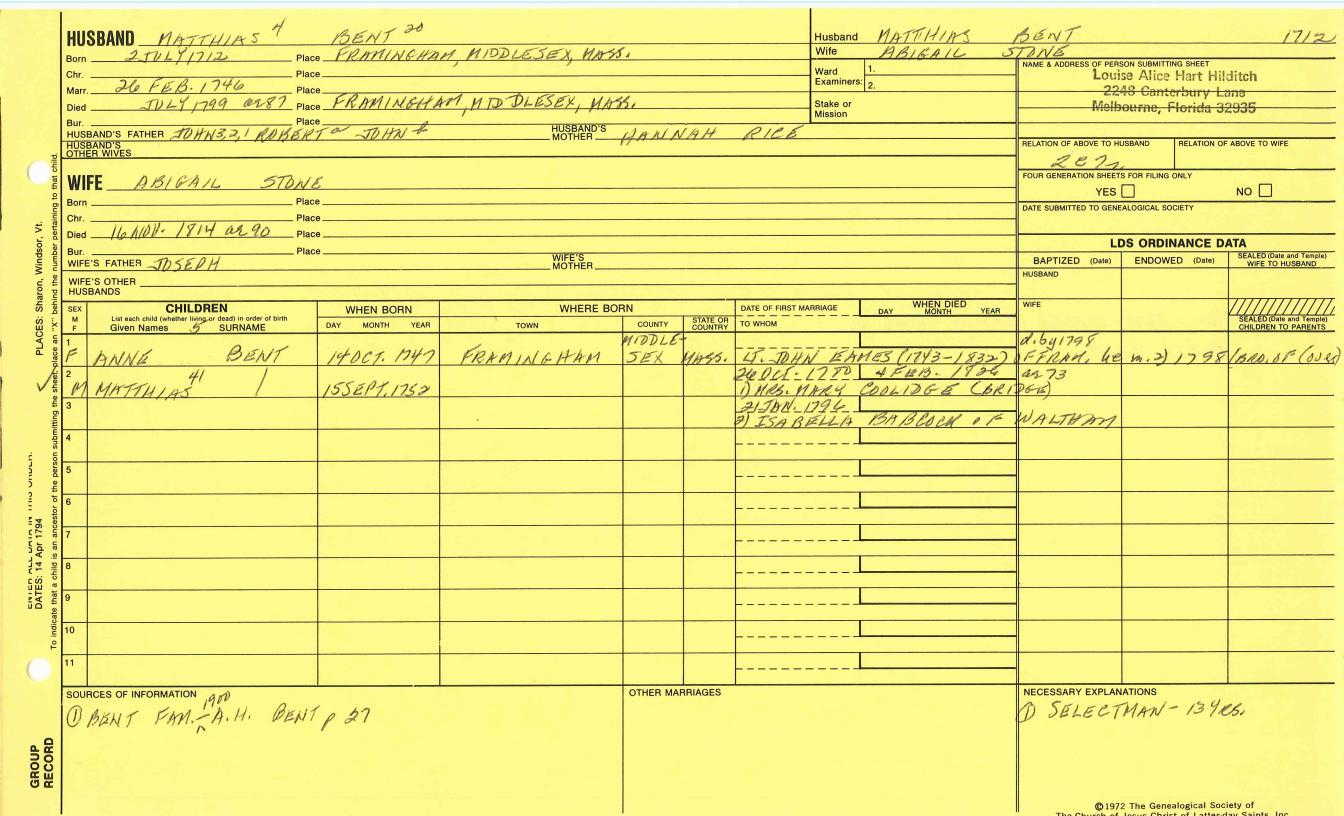 HUSBAND MATTHIAS 4 BENT 20
Born 2 JULY 1712 Place FRAMINGHAM, MIDDLESEX, MASS.
Chr. Place
Marr. 26 FEB. 1746 Place
Died JULY 1799 ae 87 Place FRAMINGHAM, MIDDLESEX, MASS.
Bur. Place
HUSBAND'S FATHER JOHN 3,2,1 ROBERT a JOHN b HUSBAND'S MOTHER HANNAH RICE
HUSBAND'S OTHER WIVES
WIFE ABIGAIL STONE
Born Place
Chr. Place
Died 16 NOV. 1814 ae 90 Place
Bur. Place
WIFE'S FATHER JOSEPH WIFE'S MOTHER
WIFE'S OTHER HUSBANDS
Husband MATTHIAS BENT 1712
Wife ABIGAIL STONE
Ward Examiners: 1.
2.
Stake or Mission
NAME & ADDRESS OF PERSON SUBMITTING SHEET
Louise Alice Hart Hilditch
2248 Canterbury Lane
Melbourne, Florida 32935
RELATION OF ABOVE TO HUSBAND RELATION OF ABOVE TO WIFE
FOUR GENERATION SHEETS FOR FILING ONLY
YES NO
DATE SUBMITTED TO GENEALOGICAL SOCIETY
LDS ORDINANCE DATA
BAPTIZED (Date) ENDOWED (Date) SEALED (Date and Temple) WIFE TO HUSBAND
HUSBAND
WIFE
SEALED (Date and Temple) CHILDREN TO PARENTS
SEX M F
CHILDREN
List each child (whether living or dead) in order of birth
Given Names 5 SURNAME
WHEN BORN
DAY MONTH YEAR
WHERE BORN
TOWN COUNTY STATE OR COUNTRY
DATE OF FIRST MARRIAGE
TO WHOM
WHEN DIED
DAY MONTH YEAR
1 F ANNE BENT 14 OCT. 1747 FRAMINGHAM MIDDLESEX MASS. LT. JOHN EAMES (1743-1832) OF FRAM, he m. 2) 1798 (BRO. OF (OVER)
d. by 1798
2 M MATTHIAS 41 15 SEPT. 1752 26 OCT. 1780 4 FEB. 1826 ae 73
1) MRS. MARY COOLIDGE (BRIDGE)
3 21 JAN. 1796
2) ISABELLA BABCOCK OF WALTHAM
4
5
6
7
8
9
10
11
SOURCES OF INFORMATION
① BENT FAM. - 1900 A.H. BENT p 27
OTHER MARRIAGES
NECESSARY EXPLANATIONS
① SELECTMAN - 13 YRS.
©1972 The Genealogical Society of
The Church of Jesus Christ of Latter-day Saints, Inc.
ENTER ALL DATA IN THIS ORDER:
DATES: 14 Apr 1794
PLACES: Sharon, Windsor, Vt.
To indicate that a child is an ancestor of the person submitting the sheet, place an "X" behind the number pertaining to that child.
GROUP RECORD